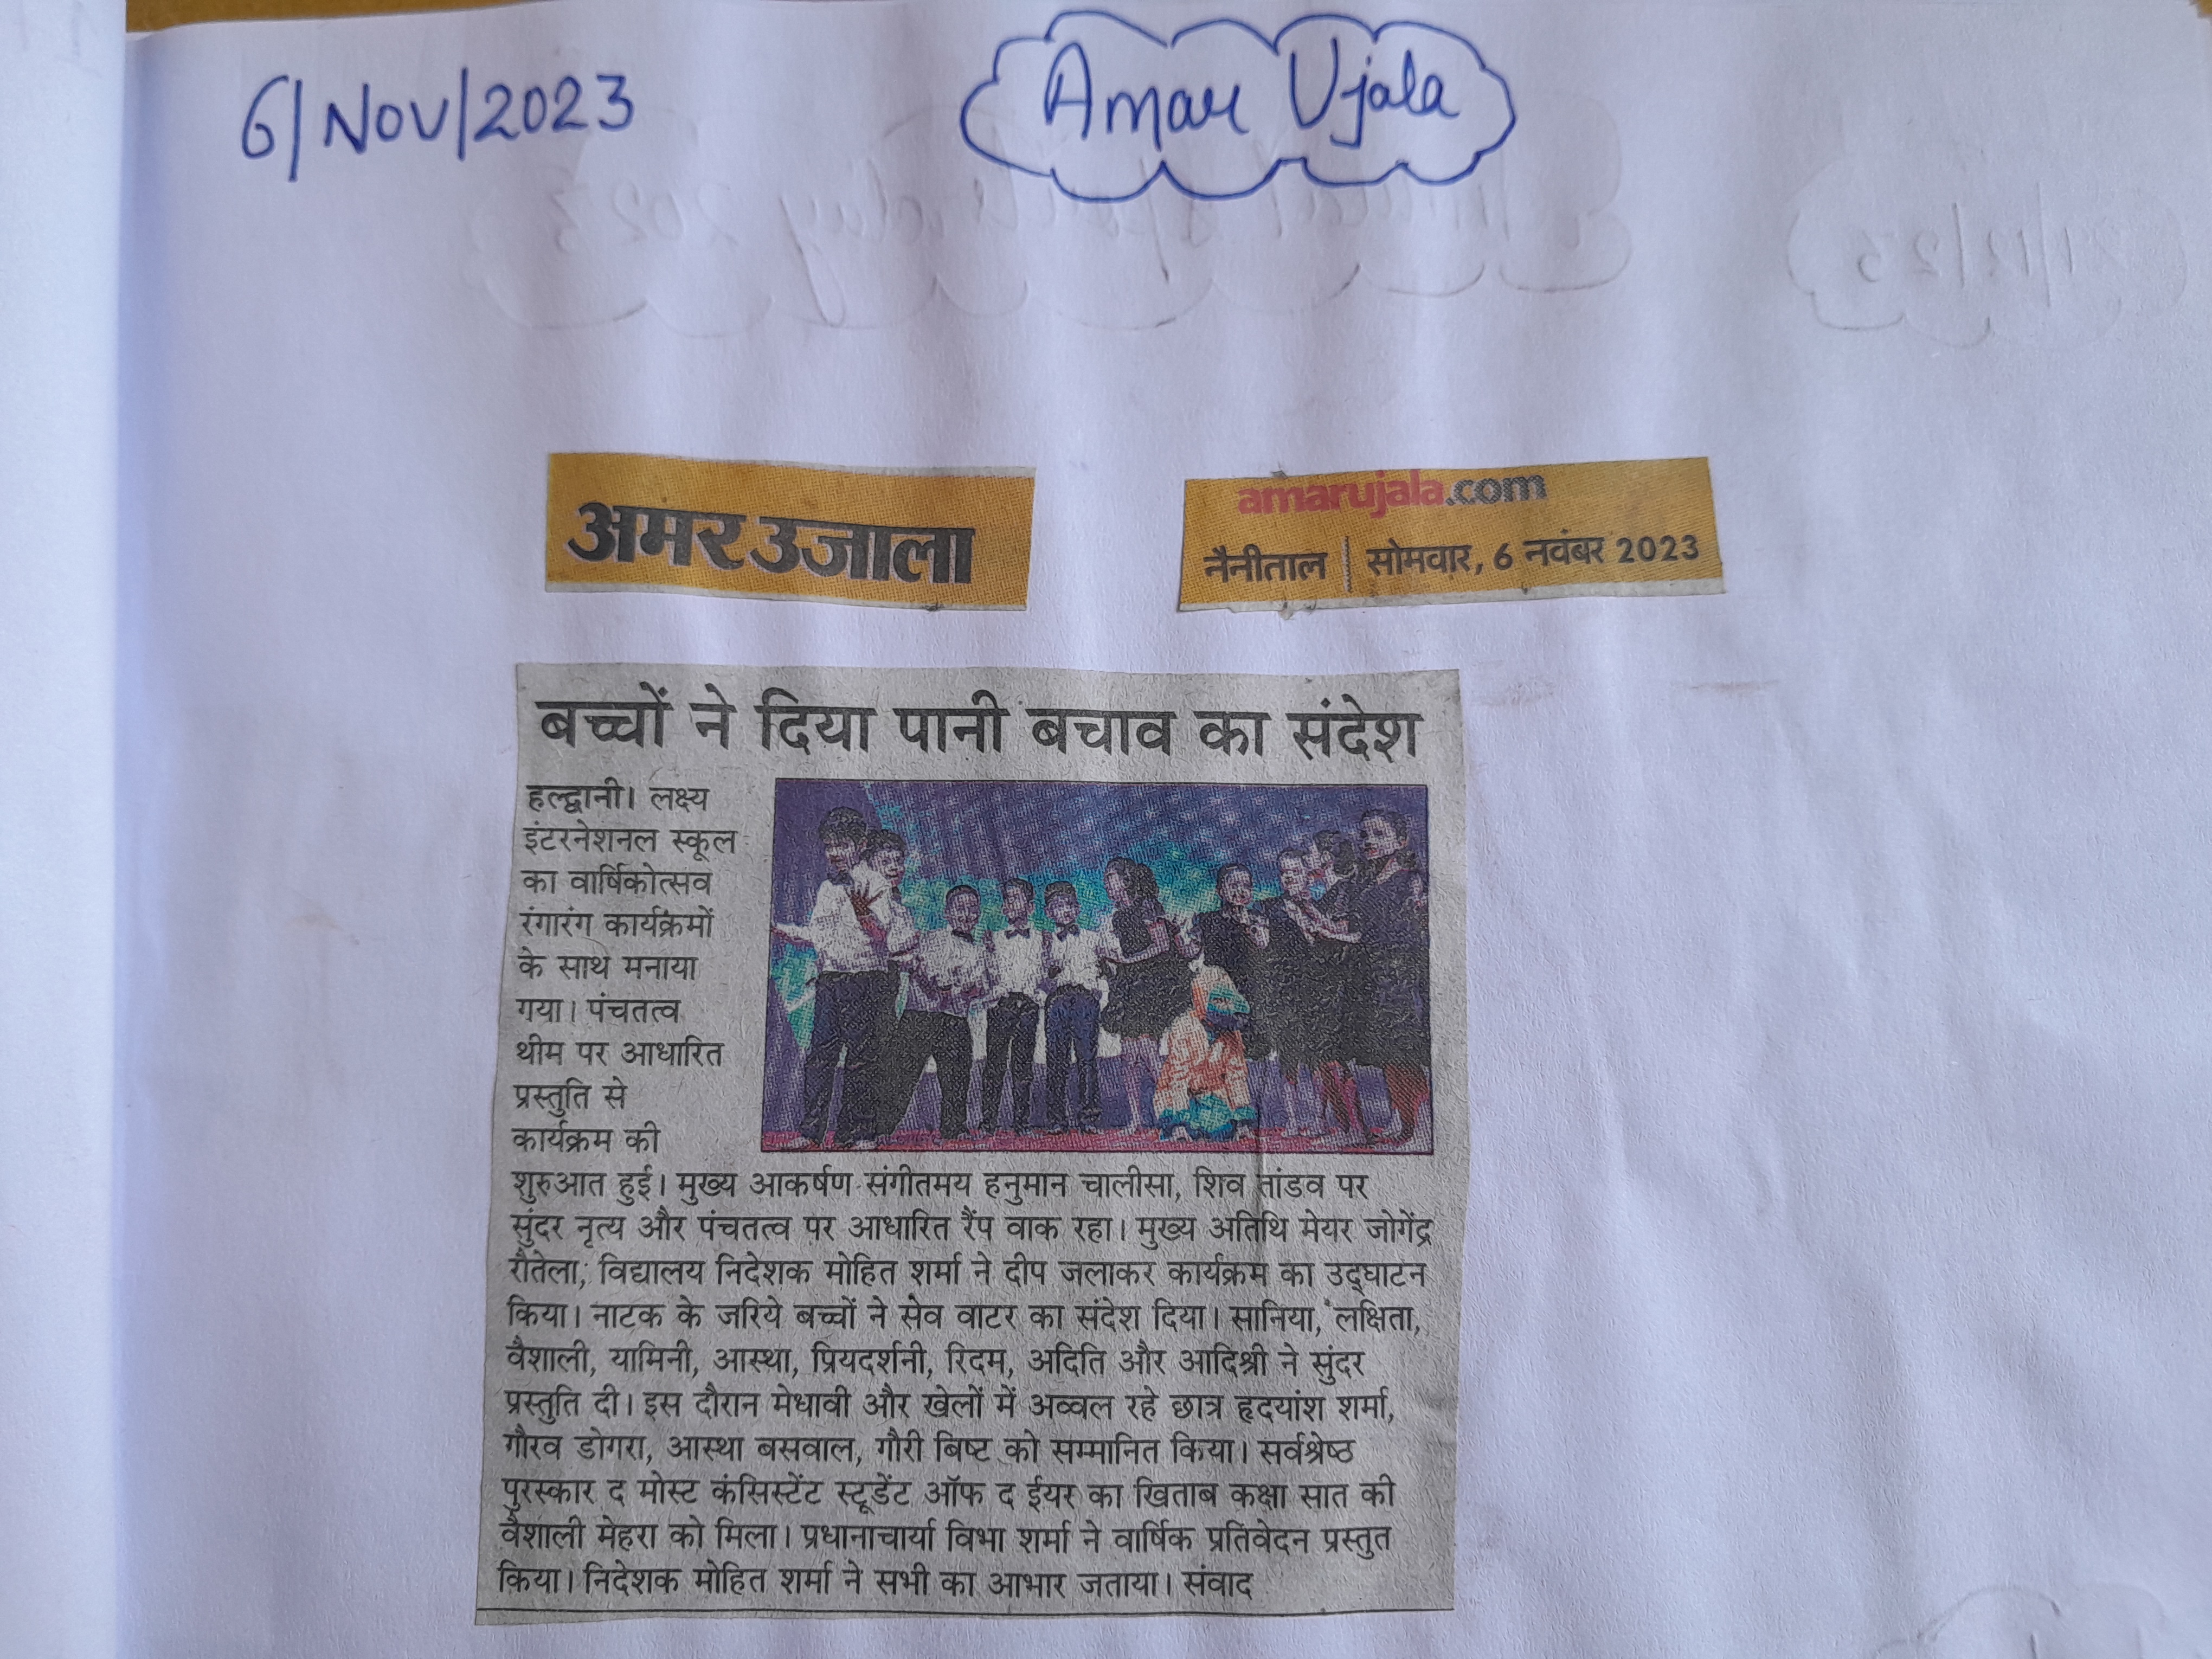 6/Nov/2023
Amar Ujala
अमर उजाला
amarujala.com
नैनीताल | सोमवार, 6 नवंबर 2023
बच्चों ने दिया पानी बचाव का संदेश
हल्द्वानी। लक्ष्य
इंटरनेशनल स्कूल
का वार्षिकोत्सव
रंगारंग कार्यक्रमों
के साथ मनाया
गया। पंचतत्व
थीम पर आधारित
प्रस्तुति से
कार्यक्रम की
शुरुआत हुई। मुख्य आकर्षण संगीतमय हनुमान चालीसा, शिव तांडव पर
सुंदर नृत्य और पंचतत्व पर आधारित रैंप वाक रहा। मुख्य अतिथि मेयर जोगेंद्र
रौतेला, विद्यालय निदेशक मोहित शर्मा ने दीप जलाकर कार्यक्रम का उद्घाटन
किया। नाटक के जरिये बच्चों ने सेव वाटर का संदेश दिया। सानिया, लक्षिता,
वैशाली, यामिनी, आस्था, प्रियदर्शनी, रिदम, अदिति और आदिश्री ने सुंदर
प्रस्तुति दी। इस दौरान मेधावी और खेलों में अव्वल रहे छात्र हृदयांश शर्मा,
गौरव डोगरा, आस्था बसवाल, गौरी बिष्ट को सम्मानित किया। सर्वश्रेष्ठ
पुरस्कार द मोस्ट कंसिस्टेंट स्टूडेंट ऑफ द ईयर का खिताब कक्षा सात की
वैशाली मेहरा को मिला। प्रधानाचार्या विभा शर्मा ने वार्षिक प्रतिवेदन प्रस्तुत
किया। निदेशक मोहित शर्मा ने सभी का आभार जताया। संवाद